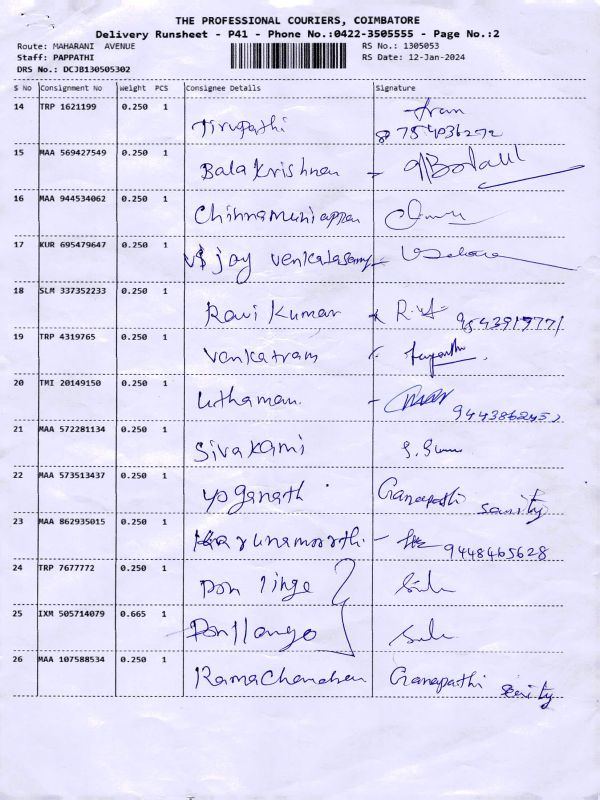 THE PROFESSIONAL COURIERS, COIMBATORE
Delivery Runsheet - P41 - Phone No.:0422-3505555 - Page No.:2
Route: MAHARANI AVENUE RS No.: 1305053
Staff: PAPPATHI RS Date: 12-Jan-2024
DRS No.: DCJB130505302
S No Consignment No Weight PCS Consignee Details Signature
14 TRP 1621199 0.250 1 Tirupathi
15 MAA 569427549 0.250 1 Bala Krishnan
16 MAA 944534062 0.250 1 Chinnamuniappan
17 KUR 695479647 0.250 1 Vijay Venkatasamy
18 SLM 337352233 0.250 1 Ravi Kumar 9543919771
19 TRP 4319765 0.250 1 Venkatram
20 TMI 20149150 0.250 1 Uthaman
21 MAA 572281134 0.250 1 Sivakami
22 MAA 573513437 0.250 1 Yoganath Ganapathi
23 MAA 862935015 0.250 1 Karunamoorthi 9448465628
24 TRP 7677772 0.250 1 Pon
25 IXM 505714079 0.665 1 Ponllango
26 MAA 107588534 0.250 1 Ramachandran Ganapathi